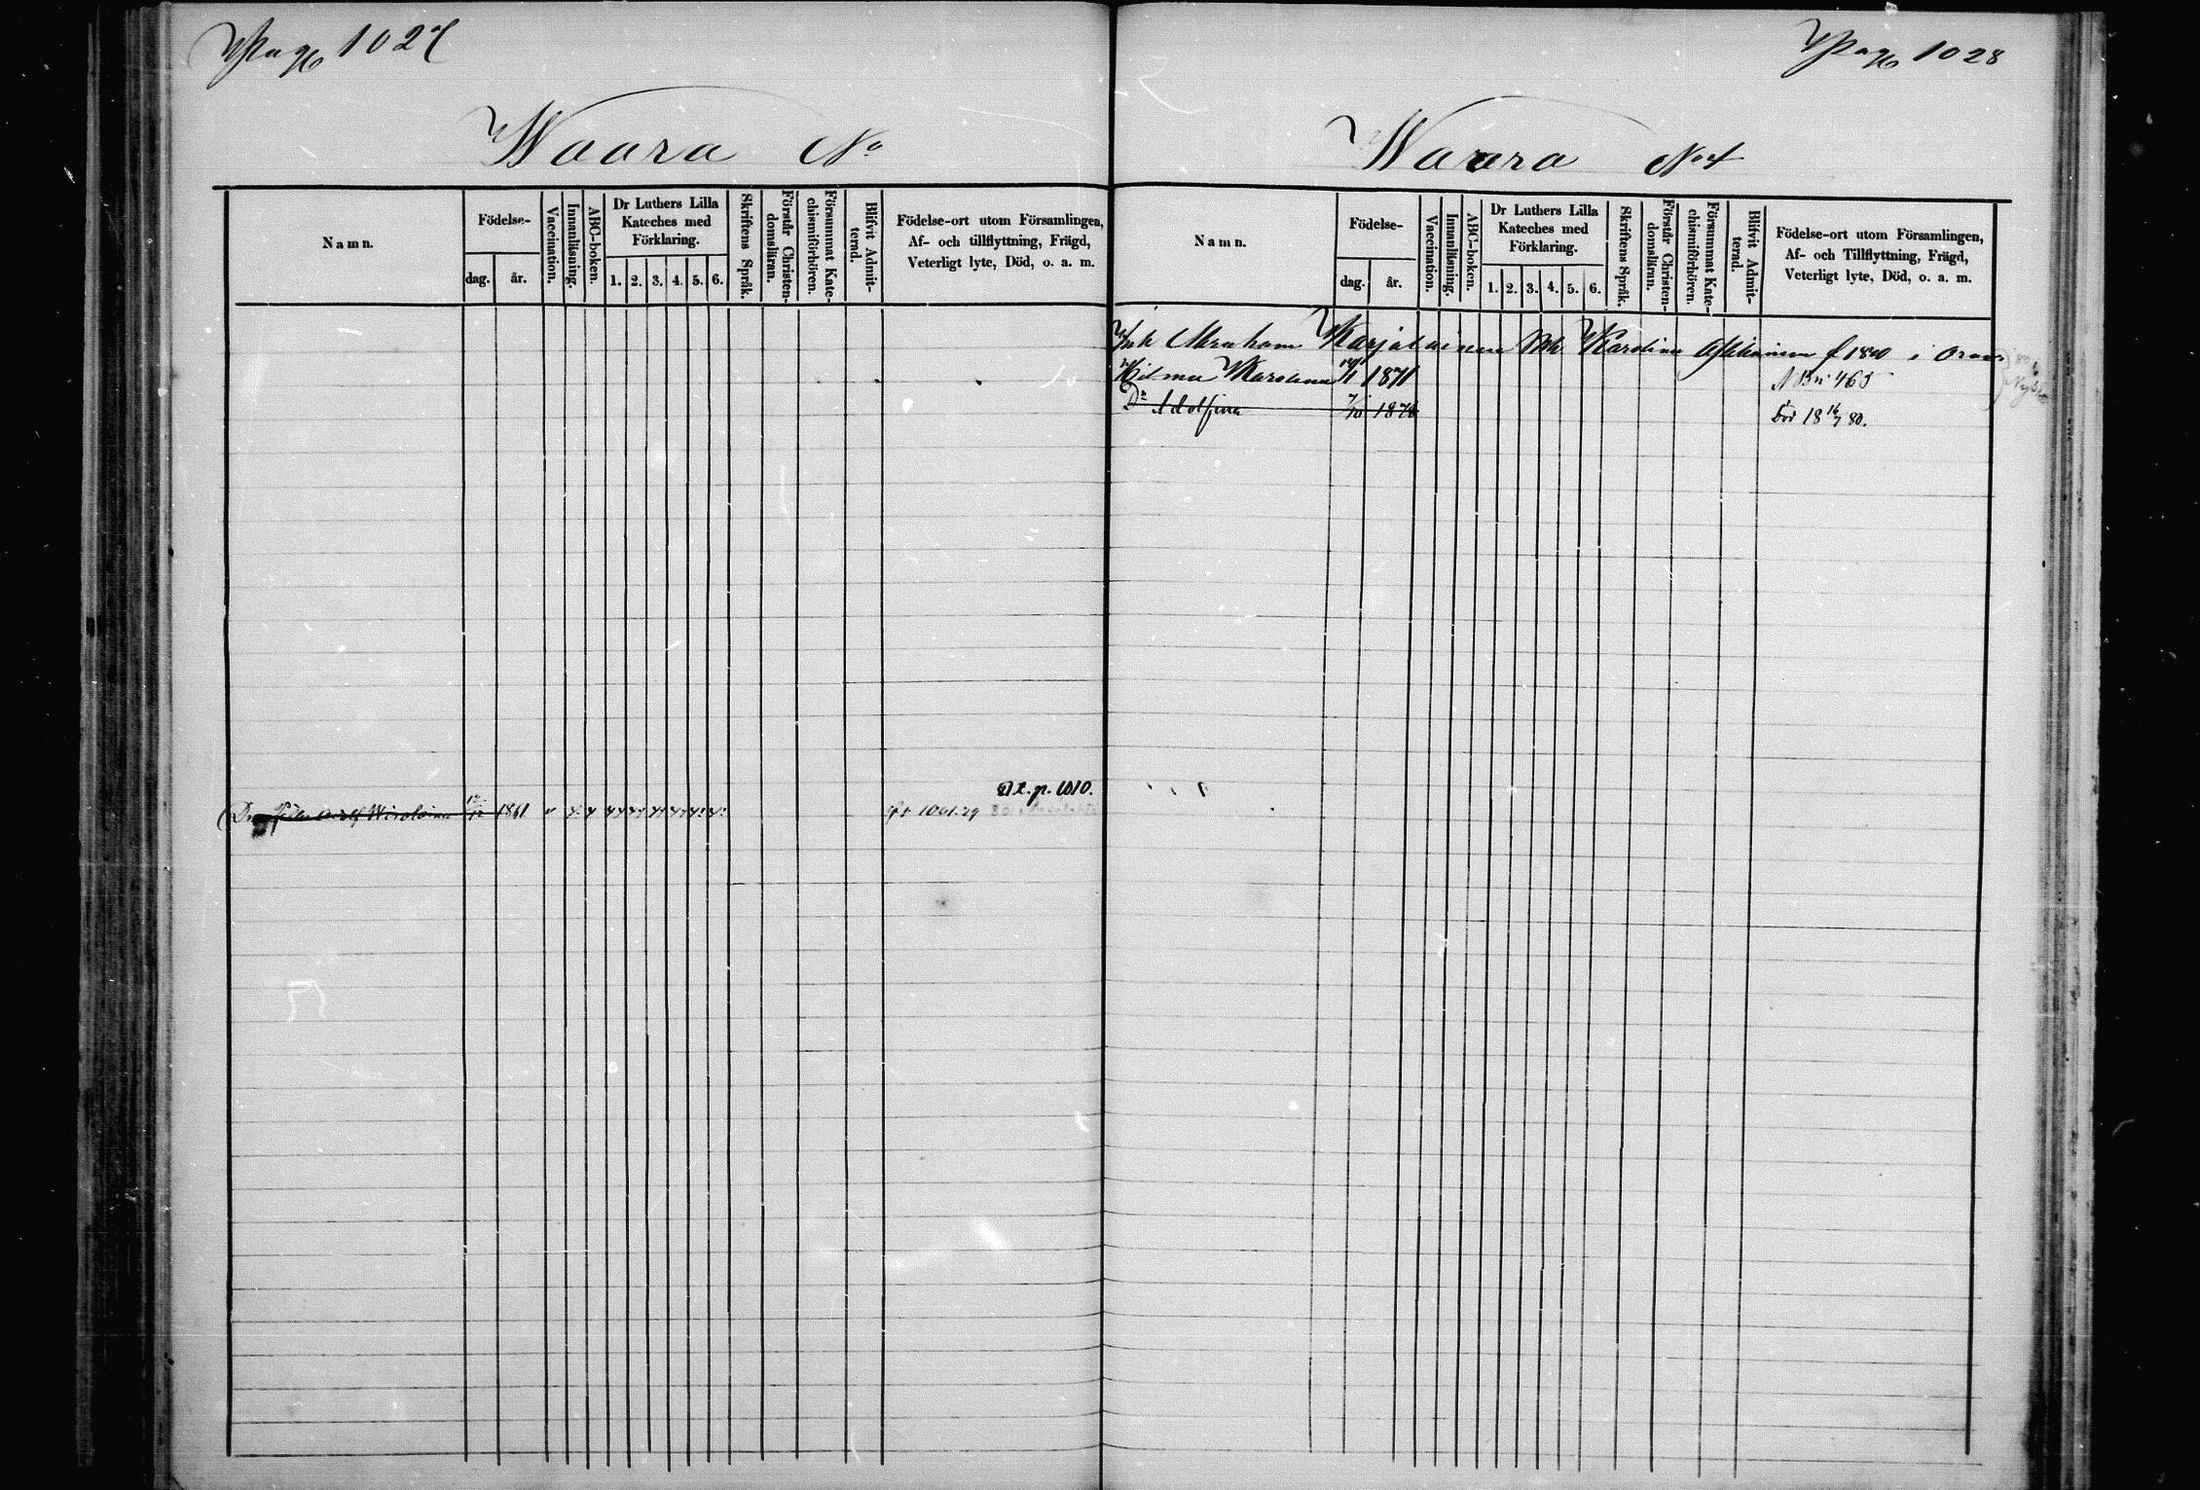 Pag 1027
Waara No
Namn.
Födelse-
dag.
år.
Vaccination.
Innanläsning.
ABC-boken.
Dr Luthers Lilla
Kateches med
Förklaring.
1. 2. 3. 4. 5. 6.
Skriftens Språk.
Förstår Christen-
domsläran.
Försummat Kate-
chismiförhören.
Blifvit Admit-
terad.
Födelse-ort utom Församlingen,
Af- och tillflyttning, Frägd,
Veterligt lyte, Död, o. a. m.
p. 1010.
1861
1061.79
Pag 1028
Waara No 4
Namn.
Födelse-
dag.
år.
Vaccination.
Innanläsning.
ABC-boken.
Dr Luthers Lilla
Kateches med
Förklaring.
1. 2. 3. 4. 5. 6.
Skriftens Språk.
Förstår Christen-
domsläran.
Försummat Kate-
chismiförhören.
Blifvit Admit-
terad.
Födelse-ort utom Församlingen,
Af- och Tillflyttning, Frägd,
Veterligt lyte, Död, o. a. m.
Abraham Karjalainen Karolina f 1840 i
Hilma Karolina 1871 465
Dr Adolfina 7/10 1878 Död 18 16/7 80.